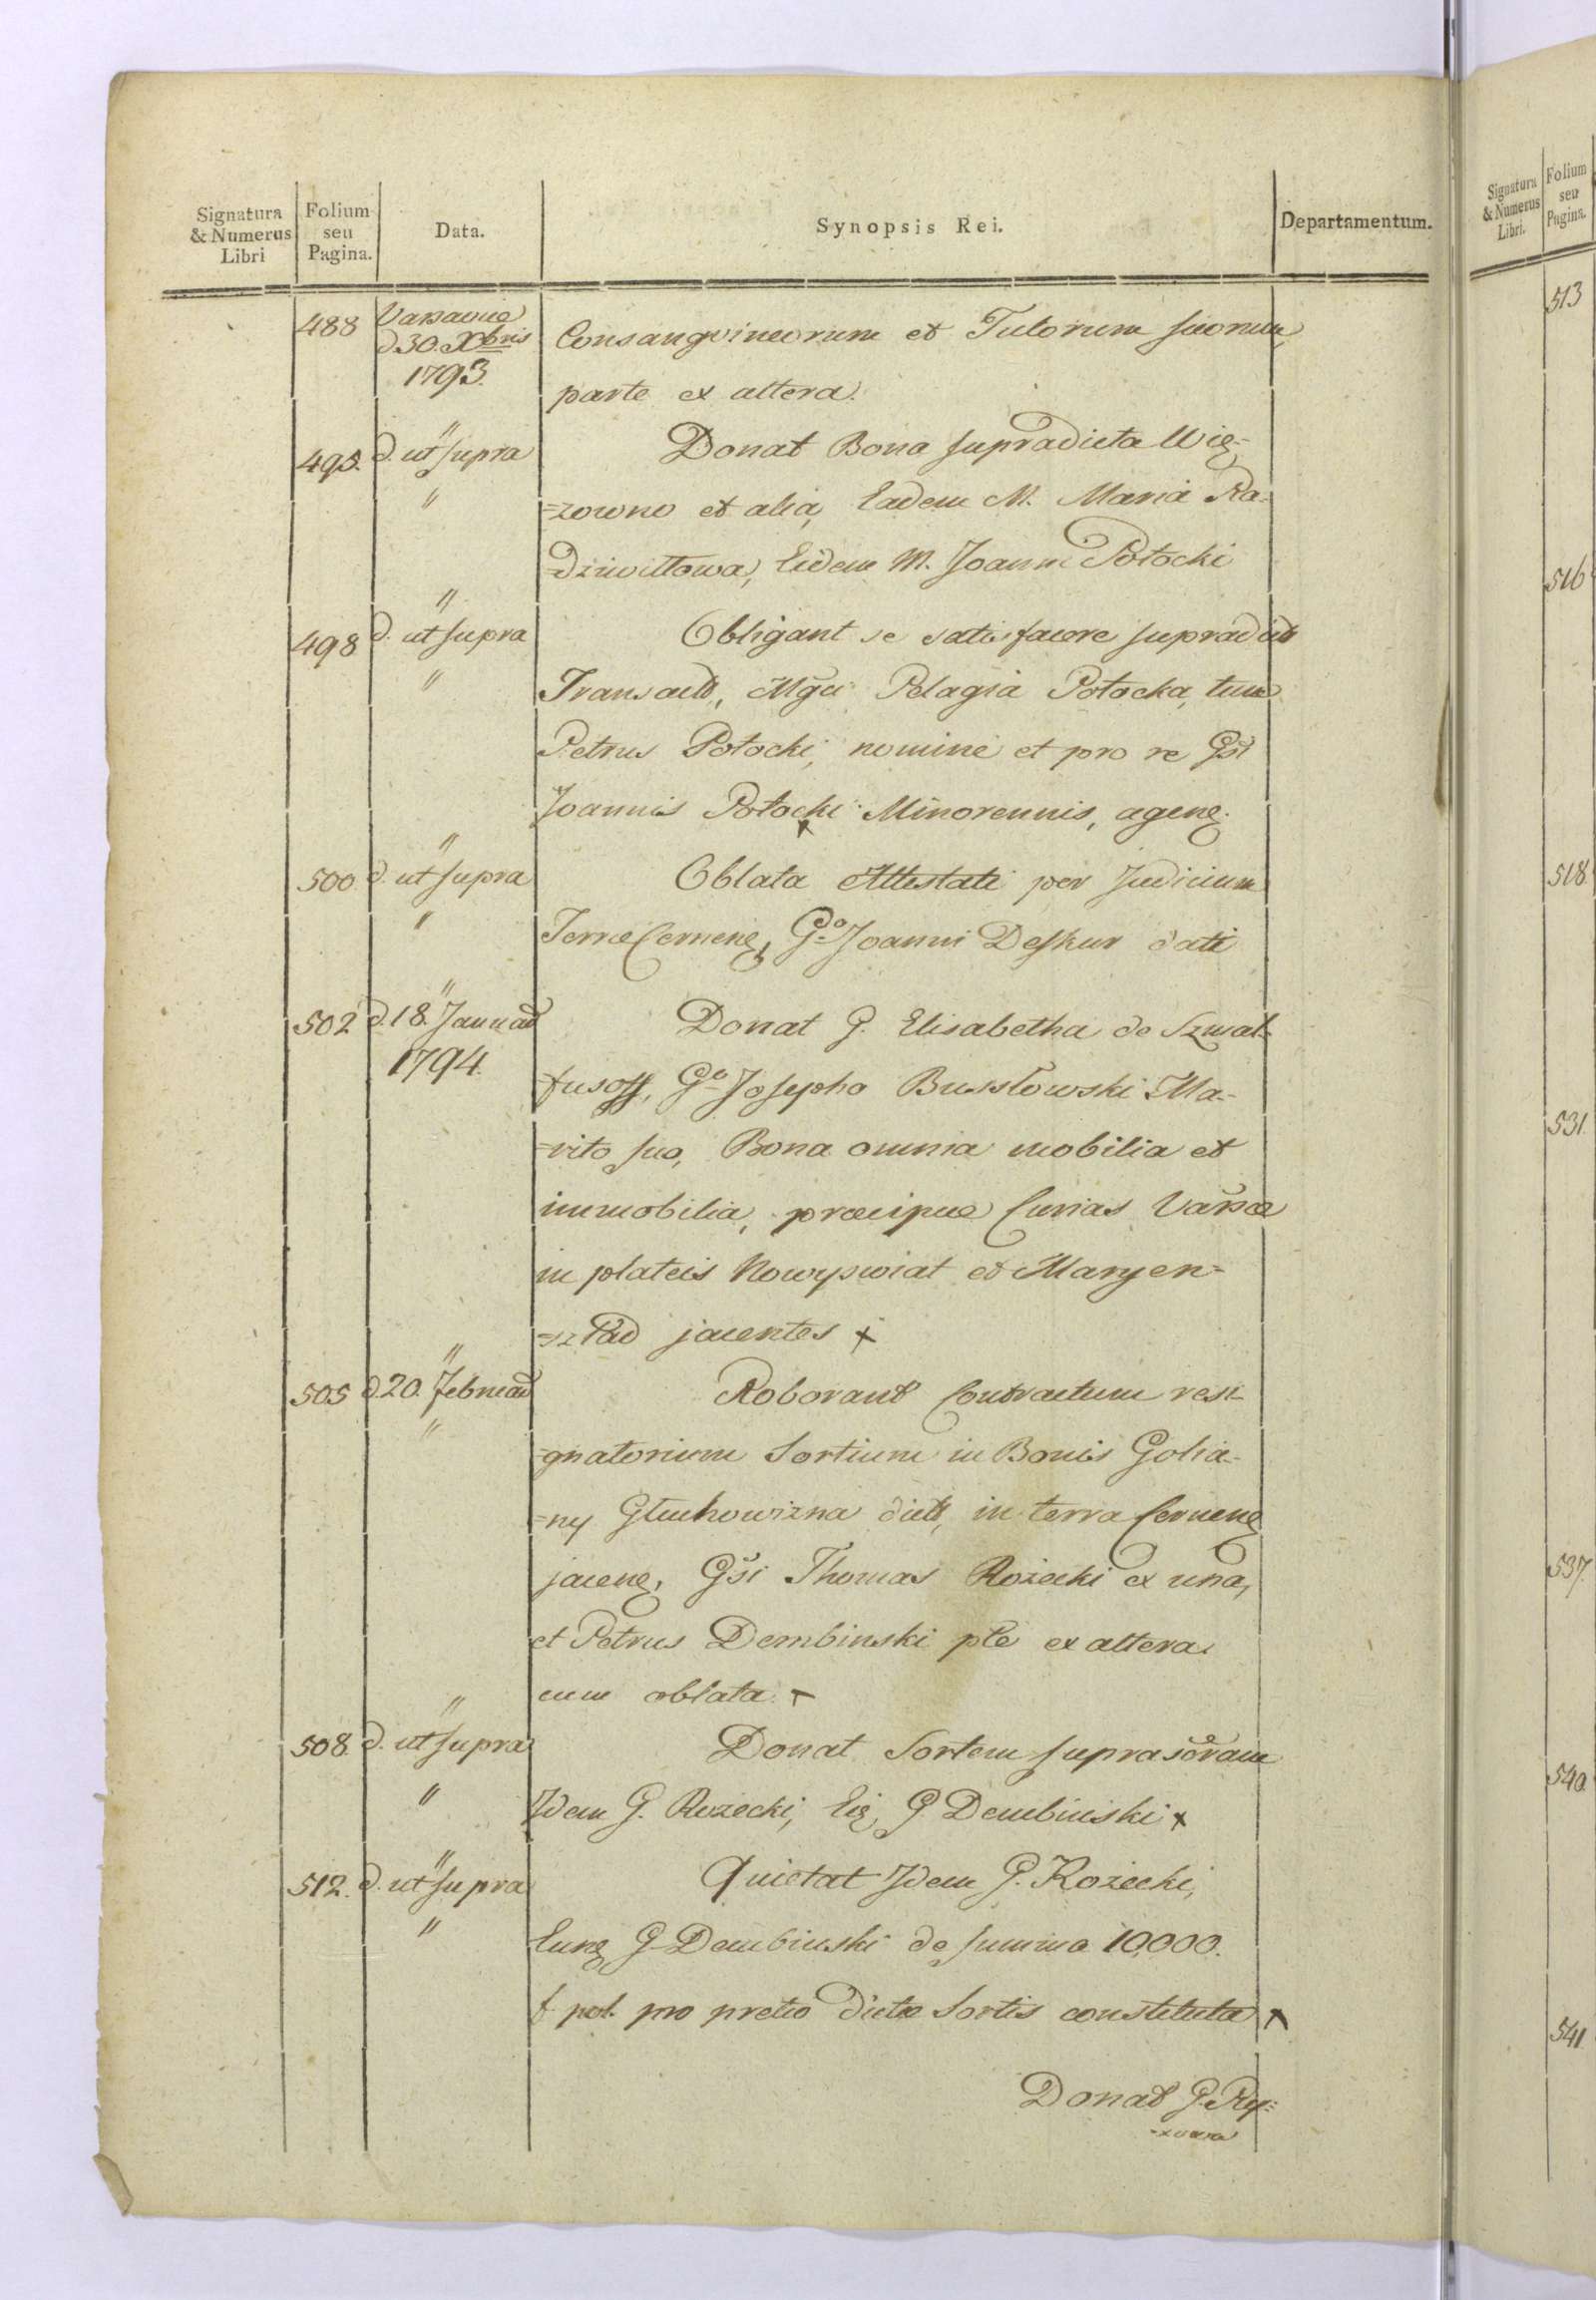 Signatura & Numerus Libri
Folium seu Pagina.
Data.
Synopsis Rei.
Departamentum.
488 Varsaviae d 30. Xbris 1793.
Consangvineorum et Tutorum suorum,
parte ex altera.
495. d. ut supra
Donat Bona supradicta Wię-
=zowno et alia, Eadem M. Maria Ra-
=dziwiłłowa, Eidem M. Joanni Potocki
498 d. ut supra
Obligant se satisfacere supradictae
Transactae, Mgci Pelagia Potocka, tum
Petrus Potocki, nomine et pro re Gsi
Joannis Potocki Minorennis, agens.
500 d. ut supra
Oblata Attestati per Judicium
Terrae Cernens, Go Joanni Deskur dati
502 d. 18. Januarii 1794.
Donat G. Elisabetha de Szmal-
=fusoff, Go Josepho Bussłowski Ma-
=rito suo, Bona omnia mobilia et
immobilia, praecipue Curias Varsae
in plateis Nowyswiat et Maryen=
=sztad jacentes x
505 d. 20. Februarii
Roborant Contractum resi-
=gnatorium Sortium in Bonis Golia-
=ny Głuchowizna dictis, in terra Cernens
jacens, Gsi Thomas Rożecki ex una,
et Petrus Dembinski pte ex altera
cum oblata. x
508. d. ut supra
Donat Sortem suprascriptam
Idem G. Rozecki, Eid. G. Dembinski x
512. d. ut supra
Quietat Idem G. Rożecki,
Eund. G. Dembinski de summa 10,000.
f pol. pro pretio dictae Sortis constituta x
Donat G. Ry=
Signatura & Numerus Libri.
Folium seu Pagina.
513
516
518.
531.
537.
540.
541.